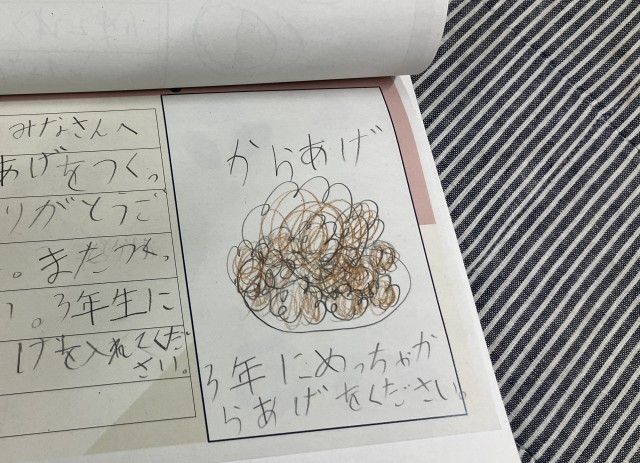 みなさんへ
あげをつくっ
りがとうご
。また
。3年生に
げを入れてくだ
さい。
からあげ
3年にめっちゃか
らあげをください。